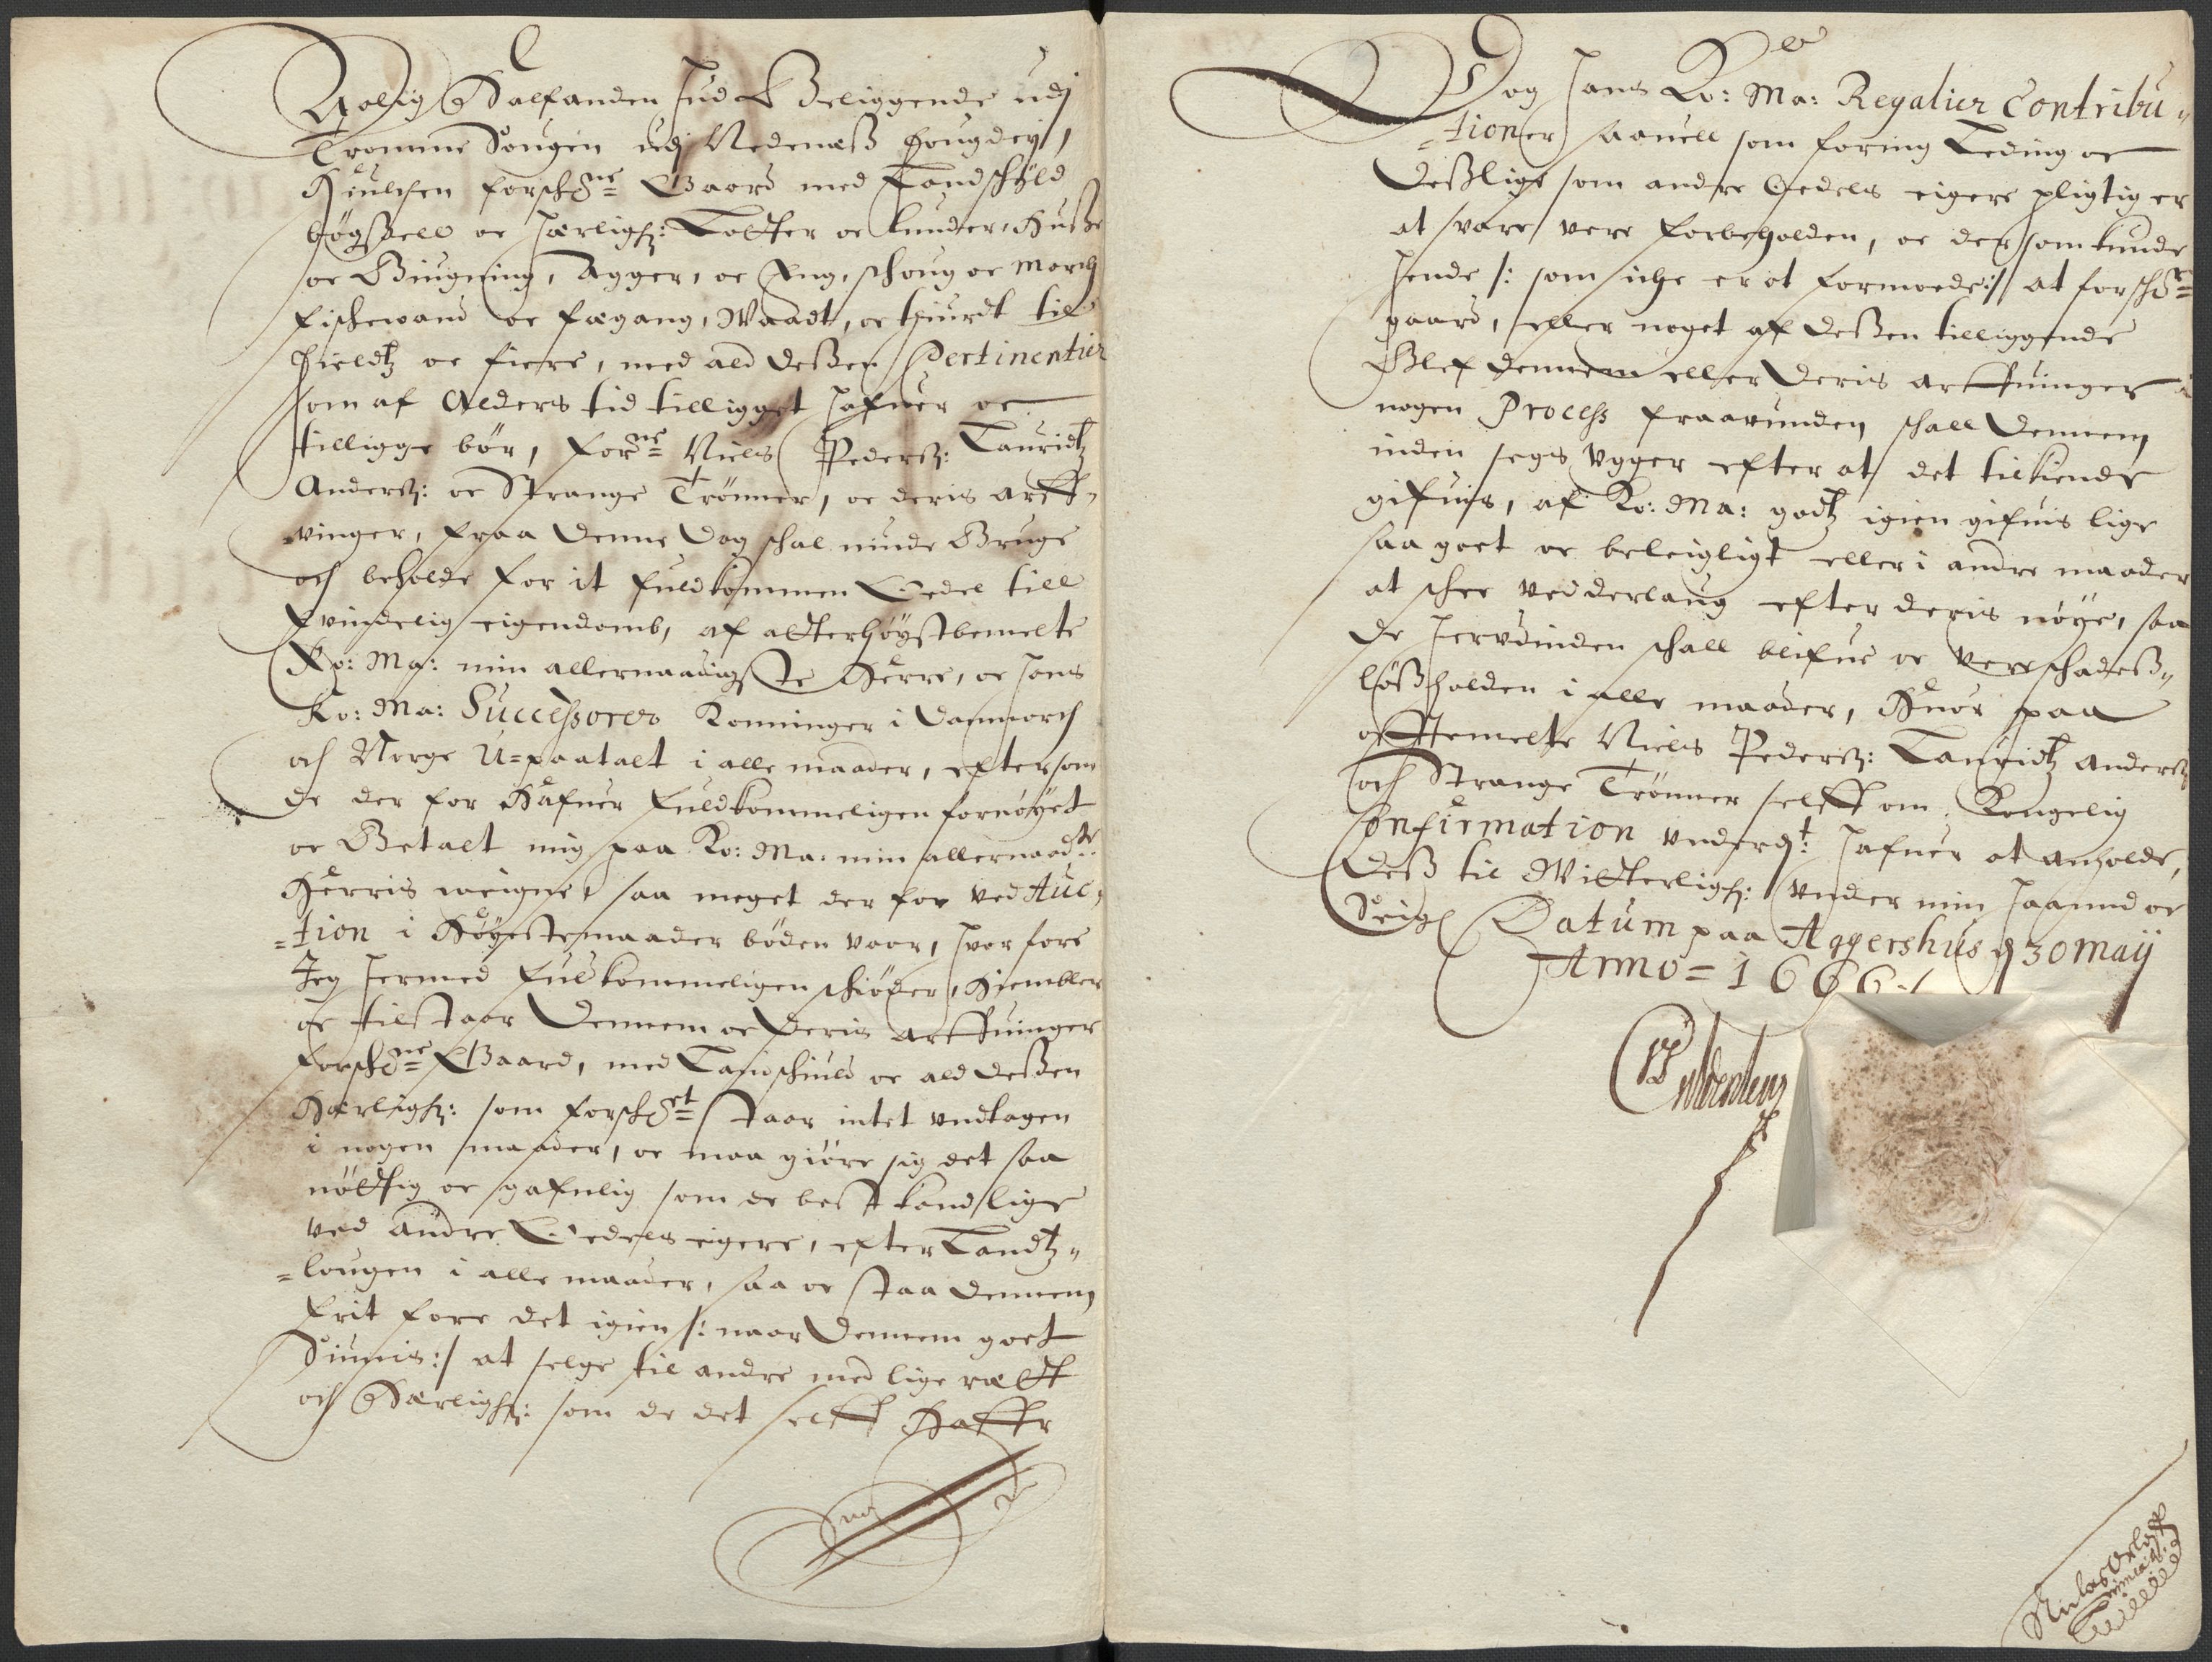 Aarlig Halfanden hud Beliggende udj
Tromme Sougen udj Nedenæß fougderj,
Huilchen forschr:ne Gaard med Landschyld
bögßell oc herligh: Lotter oc lunder, Huße
oc Biugning, Agger, oc Eng, schoug oc March
fischevand oc fægang, Waadt, oc thiurdt til
fieldtz oc fiere, med ald deßen Pertinentier
som af Alders tid tilligget hafuer oc
tilligge bör, for:ne Niels Pederß: Lauridtz
Anderß: oc Strange Trönner, oc deris arff,
vinger, fraa denne dag schal niude Bruge
och beholde for it fuldkommen Oedel till
Evindelig eigendomb, af alterhöystbemelte
Ko: Ma: min allernaadigste Herre, oc hans
Ko: Ma: Successorer Konninger i Danmarch
och Norge U=paatalt i alle maader, eftersom
de der for Hafuer fuldkommeligen fornöyet
oc Betalt mig paa Ko: Ma: min allernaad:te
Herris weigne, saa meget der for ved Auc,
=tion i Höyestemaader böden vaar, hvor fore
Jeg hermed fuldkommeligen schiöder, Hiembler
oc tilstaar dennem oc deris arffuinger
forschr:ne Gaard, med Landschiuld oc ald deßen
Herligh: som forschr:et staar intet undtagen
i nogen maader, oc maa giöre sig det saa
nöttig oc gafnlig som de best kand, lige
ved andre Oedels eigere, efter Landtz,,
=lougen i alle maader, saa oc staa dennem
frit fore det igien /: naar dennem goet
Siunis:/ at selge til andre med lige rætt
och Herligh: som de det selff Haffr
Dog hans Ko: Ma: Regalier Contribu,,
=tioner saauell som foring Leding oc
deßlige som andre Oedels eigere pligtig er
at svare vere forbeholden, oc der som kunde
hende /: som iche er at formode:/ at forschr:ne
gaard, eller noget af deßen tilliggende
Blef dennem eller deris arffuinger i
nogen Process fraavunden, schall dennem
inden segs Ugger efter at det tilkiende
gifuis, af Ko: Ma: godtz igien gifuis lige
saa goet oc beleigligt eller i andre maader
at schee vedderlaug efter deris nöye, saa
de herudinden schall blifue oc vere schadeß,,
lößholden i alle maader, Huor paa
oftemelte Niels Pederß: Lauridtz Anderß
och Strange Trönner selff om Kongelig
Confirmation underd:t hafuer at anholde,
Deß til Witterligh: under min haannd oc
Seigl Datum paa Aggershus d 30 Maij
Anno = 1666./.